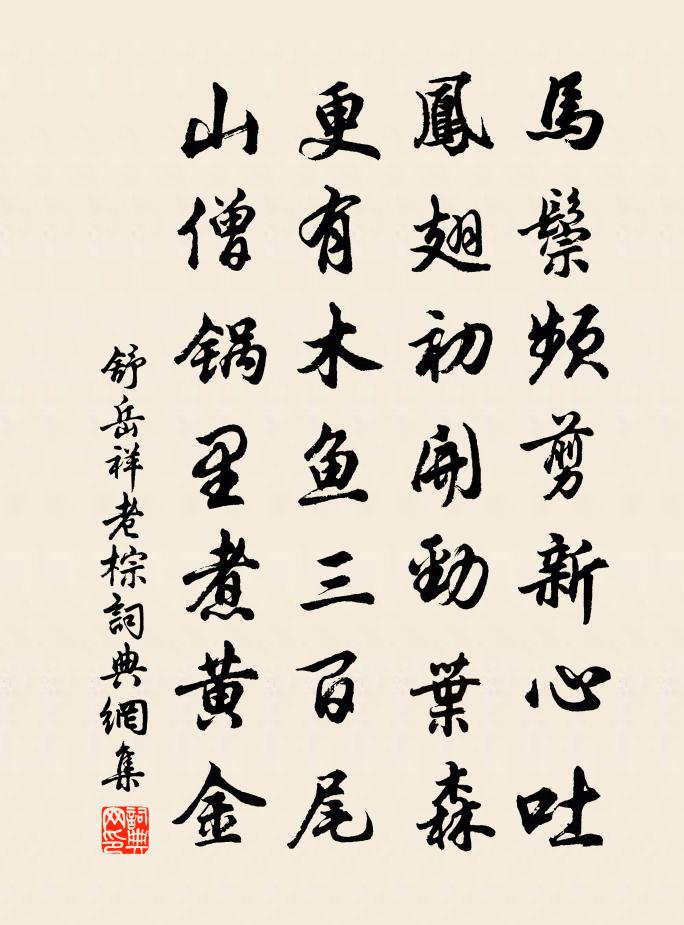 馬鬃頻剪新心吐
鳳翅初開勁葉森
更有木鱼三百尾
山僧锅里煮黄金
舒岳祥老棕詞典網集
詞典网印